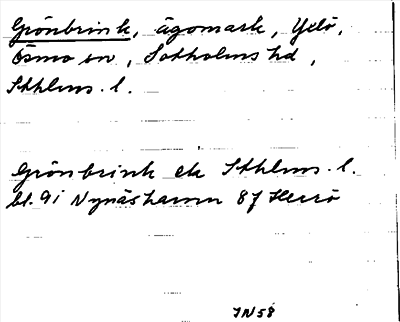 Grönbrink, ägomark, Yxlö,
Ösmo sn, Sotholms hd,
Sthlms. l.
Grönbrink ek Sthlms. l.
bl. 9i Nynäshamn 87 Herrö
IN58